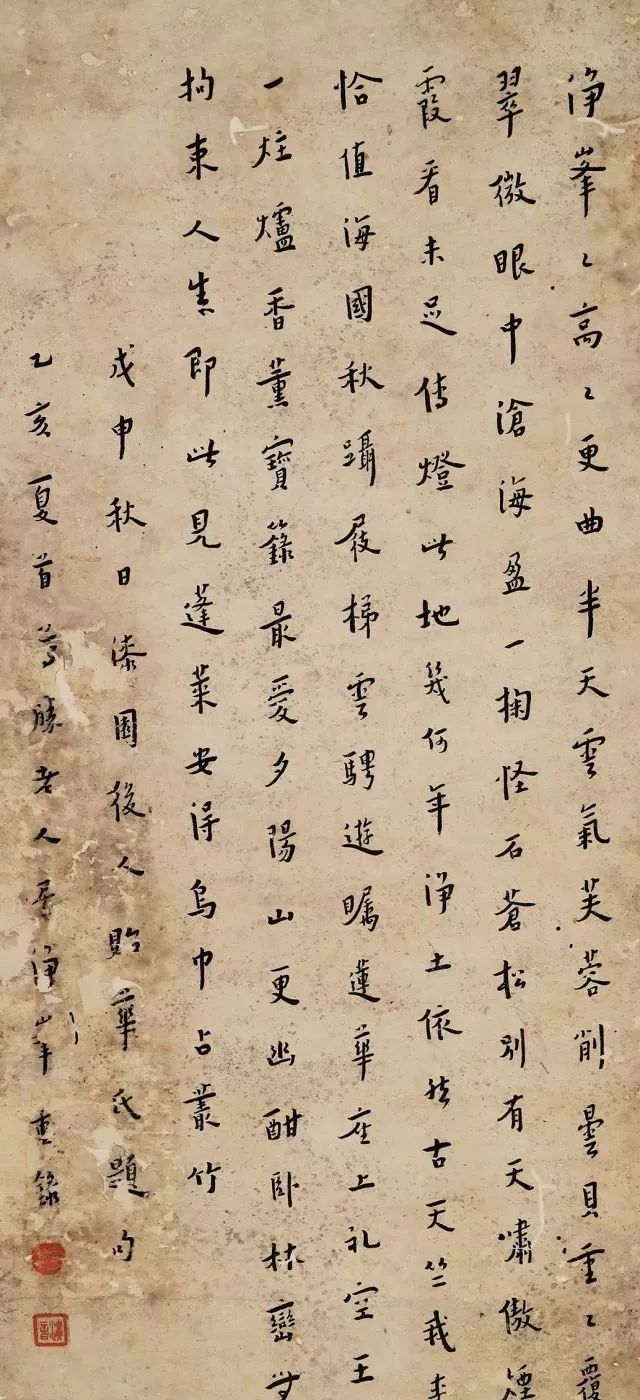 净峯〻高〻更曲半天雲氣芙蓉削曇貝重〻覆
翠微眼中滄海盈一掬怪石蒼松別有天嘯傲煙
霞看未足傳燈此地幾何年淨土依然古天竺我来
恰值海國秋躡屐梯雲騁遊矚蓮華座上礼空王
一炷爐香薰寶籙最愛夕陽山更幽酣卧林巒
拘束人生即此見蓬莱安得烏巾占叢竹
戊申秋日漆園後人貽華氏題句
乙亥夏首尊勝老人居净峯重錄